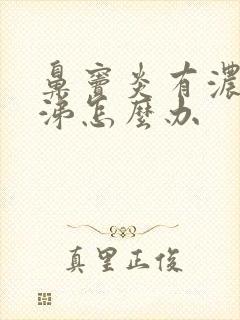 鼻窦炎有濃
涕怎麼办
真里正俊